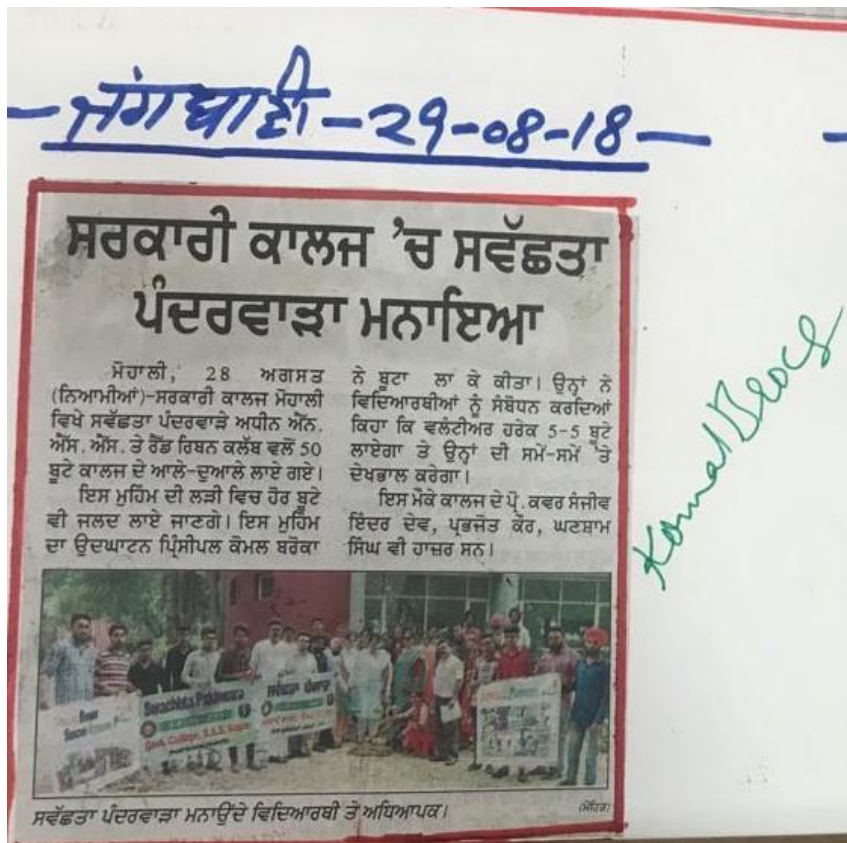 ਜਗਬਾਣੀ - 29-08-18
ਸਰਕਾਰੀ ਕਾਲਜ ’ਚ ਸਵੱਛਤਾ
ਪੰਦਰਵਾੜਾ ਮਨਾਇਆ
ਮੋਹਾਲੀ, 28 ਅਗਸਤ
(ਨਿਆਮੀਆਂ)-ਸਰਕਾਰੀ ਕਾਲਜ ਮੋਹਾਲੀ
ਵਿਖੇ ਸਵੱਛਤਾ ਪੰਦਰਵਾੜੇ ਅਧੀਨ ਐੱਨ.
ਐੱਸ. ਐੱਸ. ਤੇ ਰੈੱਡ ਰਿਬਨ ਕਲੱਬ ਵਲੋਂ 50
ਬੂਟੇ ਕਾਲਜ ਦੇ ਆਲੇ-ਦੁਆਲੇ ਲਾਏ ਗਏ।
ਇਸ ਮੁਹਿੰਮ ਦੀ ਲੜੀ ਵਿਚ ਹੋਰ ਬੂਟੇ
ਵੀ ਜਲਦ ਲਾਏ ਜਾਣਗੇ। ਇਸ ਮੁਹਿੰਮ
ਦਾ ਉਦਘਾਟਨ ਪ੍ਰਿੰਸੀਪਲ ਕੋਮਲ ਬਰੋਕਾ
ਨੇ ਬੂਟਾ ਲਾ ਕੇ ਕੀਤਾ। ਉਨ੍ਹਾਂ ਨੇ
ਵਿਦਿਆਰਥੀਆਂ ਨੂੰ ਸੰਬੋਧਨ ਕਰਦਿਆਂ
ਕਿਹਾ ਕਿ ਵਲੰਟੀਅਰ ਹਰੇਕ 5-5 ਬੂਟੇ
ਲਾਏਗਾ ਤੇ ਉਨ੍ਹਾਂ ਦੀ ਸਮੇਂ-ਸਮੇਂ ’ਤੇ
ਦੇਖਭਾਲ ਕਰੇਗਾ।
ਇਸ ਮੌਕੇ ਕਾਲਜ ਦੇ ਪ੍ਰੋ. ਕਵਰ ਸੰਜੀਵ
ਇੰਦਰ ਦੇਵ, ਪ੍ਰਭਜੋਤ ਕੌਰ, ਘਣਸ਼ਾਮ
ਸਿੰਘ ਵੀ ਹਾਜ਼ਰ ਸਨ।
Komal Broca
Swachhta Pakhwara
Govt. College, S.A.S. Nagar
ਸਵੱਛਤਾ ਪੰਦਰਵਾੜਾ ਮਨਾਉਂਦੇ ਵਿਦਿਆਰਥੀ ਤੇ ਅਧਿਆਪਕ।
(ਮੋਹਿਤ)